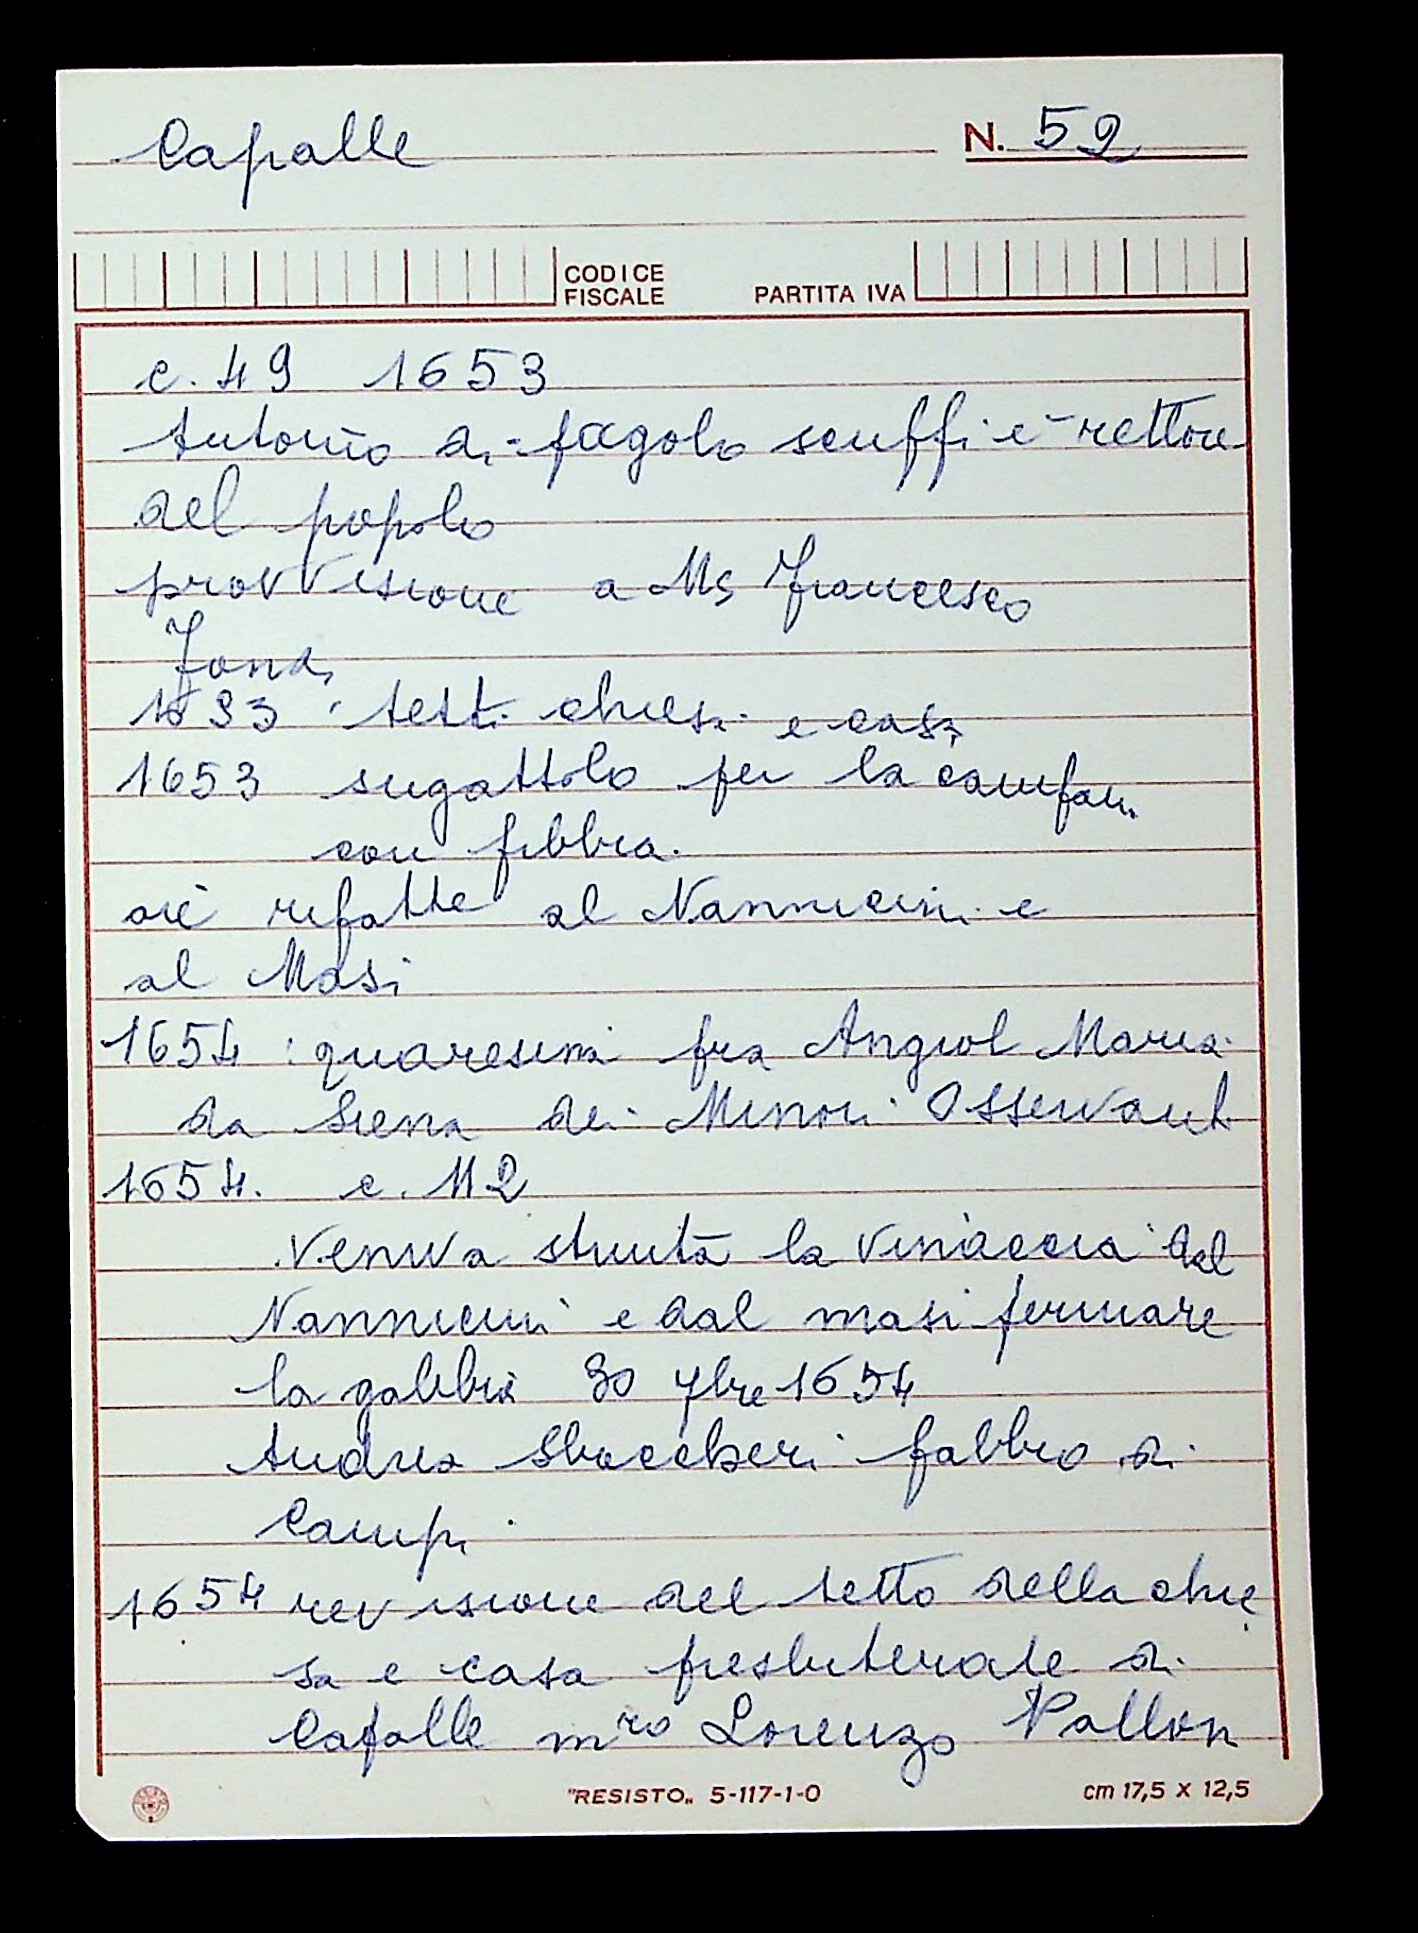 Capalle N. 52
CODICE
FISCALE PARTITA IVA
c. 49 1653
Antonio di fagolo scuffi e rettore
del popolo
provvisione a Ms Francesco
1653 tetti chiesa e casa
1653 sugattolo per la campan.
con fibbia.
rifatte al Nannicini e
al Masi
1654 : quaresima fra Angiol Maria
da Siena dei Minori Osservant
1654. c. 112
Veniva strinta la vinaccia dal
Nannicini e dal masi fermare
la gabbia 30 7bre 1654
Andrea fabbro di
Campi
1654 revisione del tetto della chie
sa e casa presbiterale di
Capalle mro Lorenzo Pallon
"RESISTO„ 5-117-1-0 cm 17,5 x 12,5